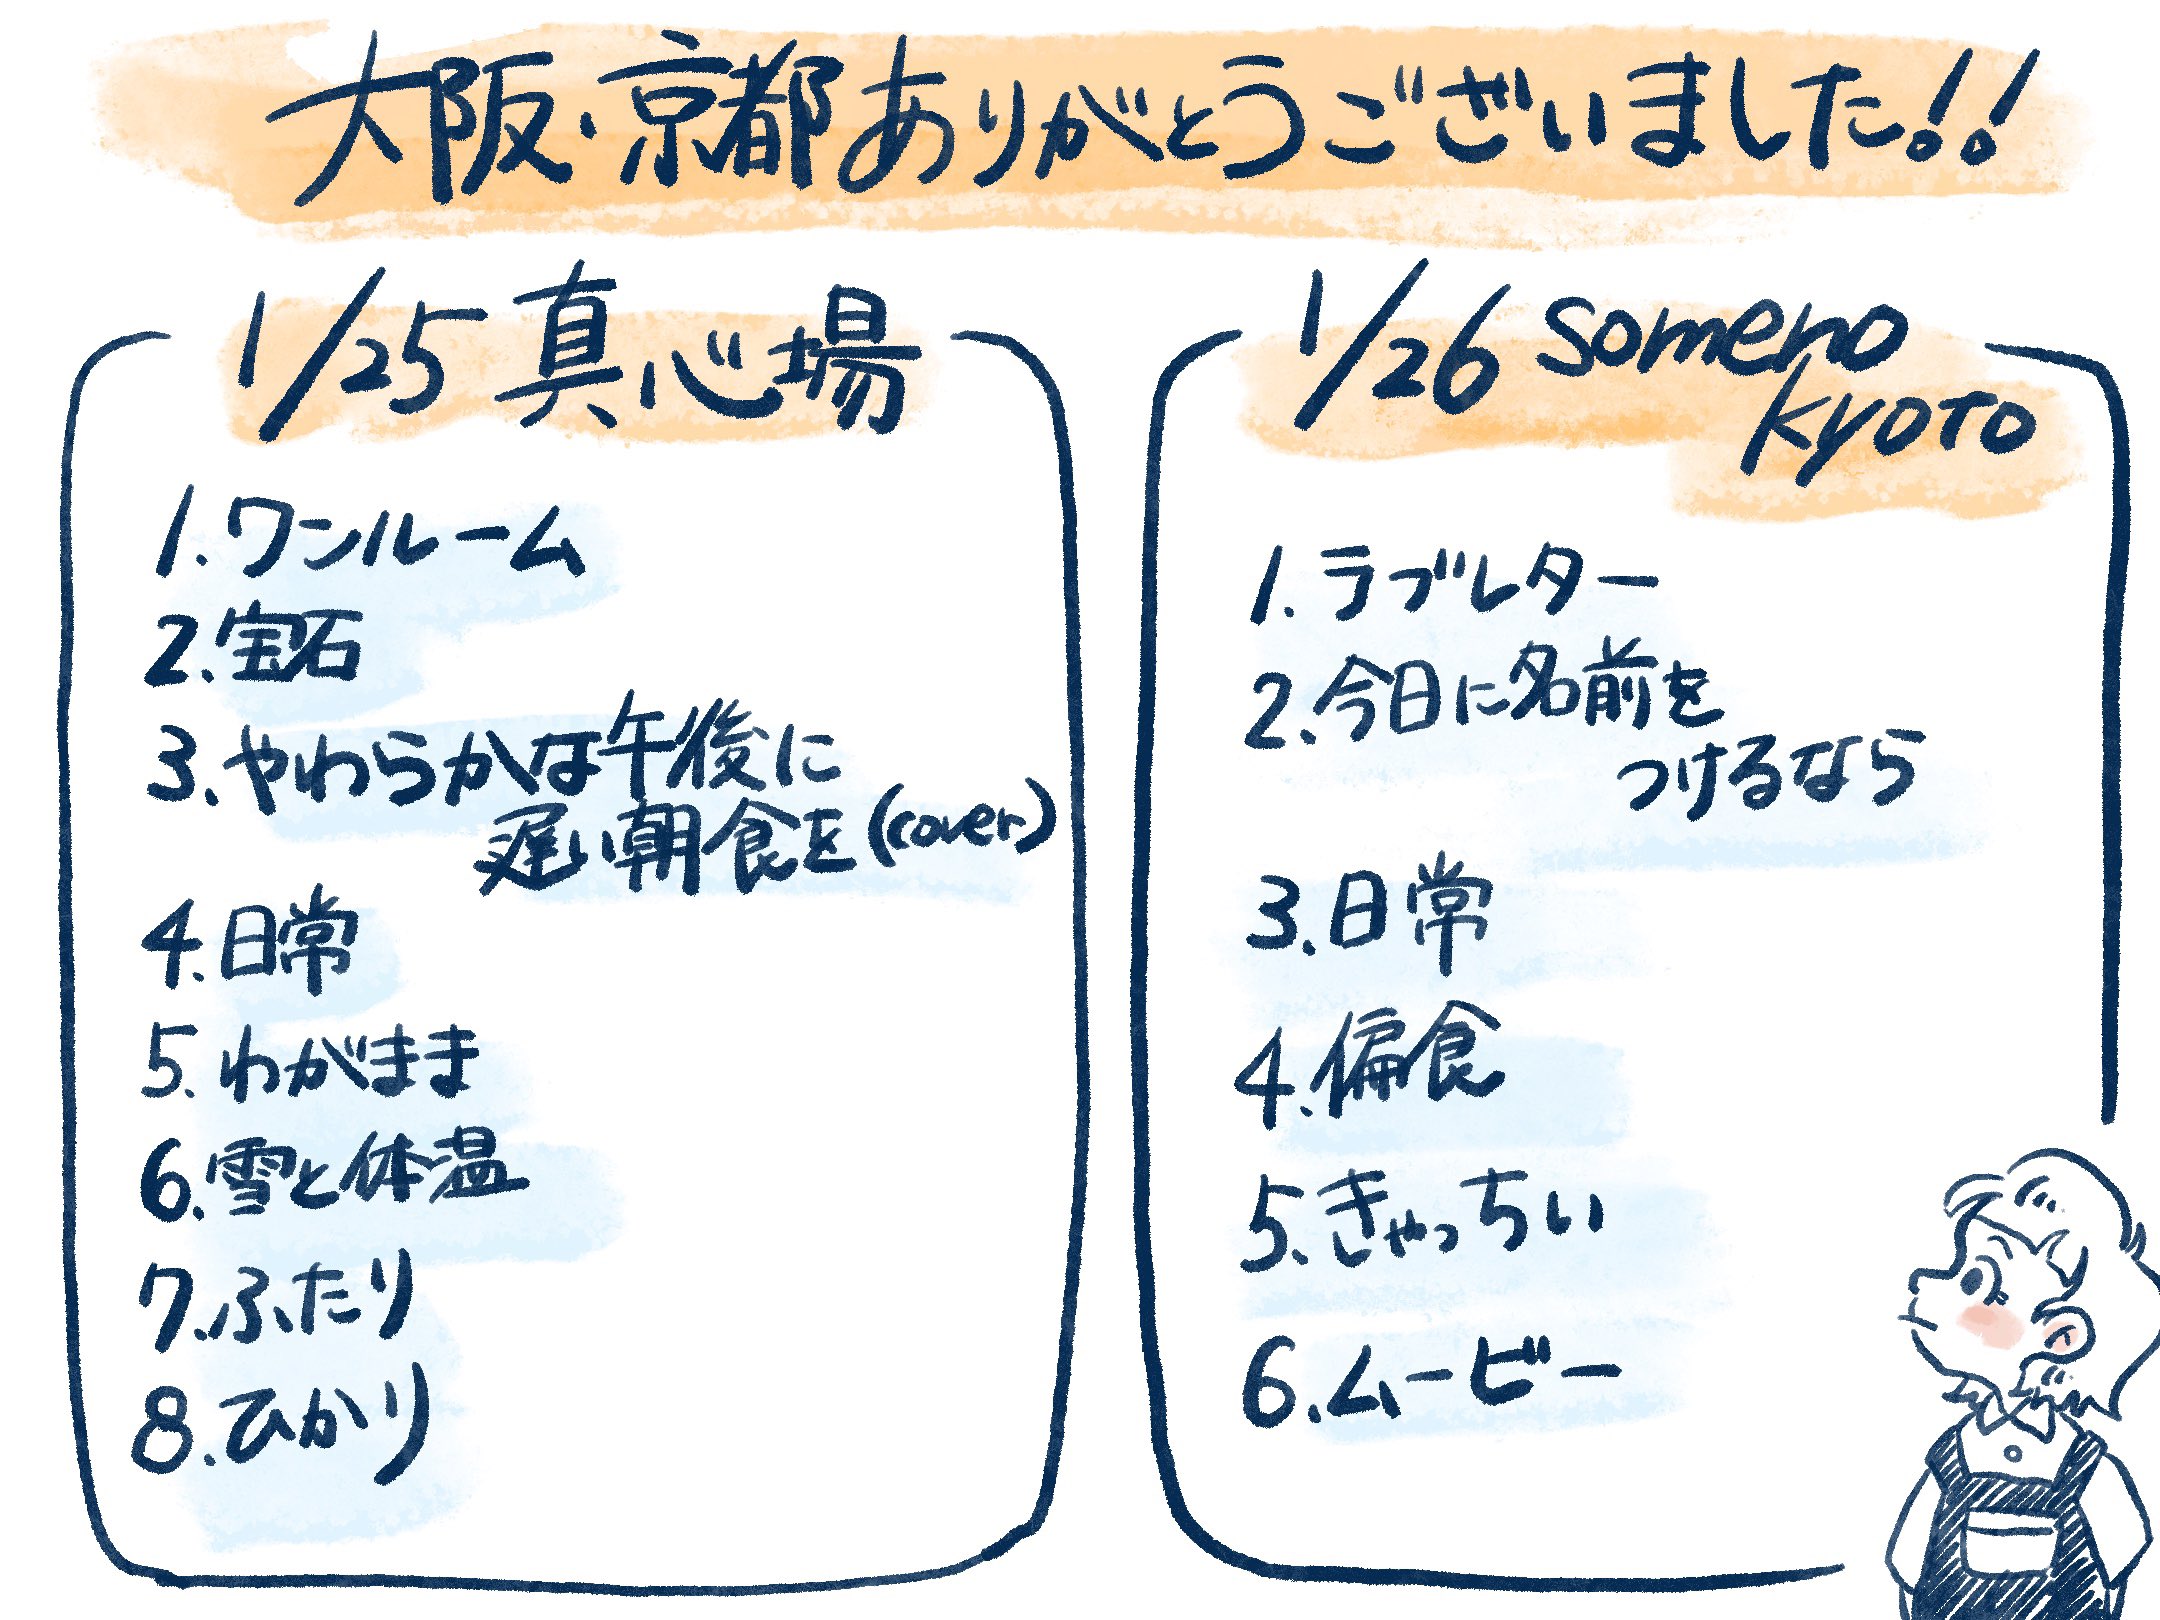 大阪・京都ありがとうございました!!
1/25 真心場
1.ワンルーム
2.宝石
3.やわらかな午後に
遅い朝食を(cover)
4.日常
5.わがまま
6.雪と体温
7.ふたり
8.ひかり
1/26 someno
kyoto
1.ラブレター
2.今日に名前を
つけるなら
3.日常
4.偏食
5.きゃっちい
6.ムービー